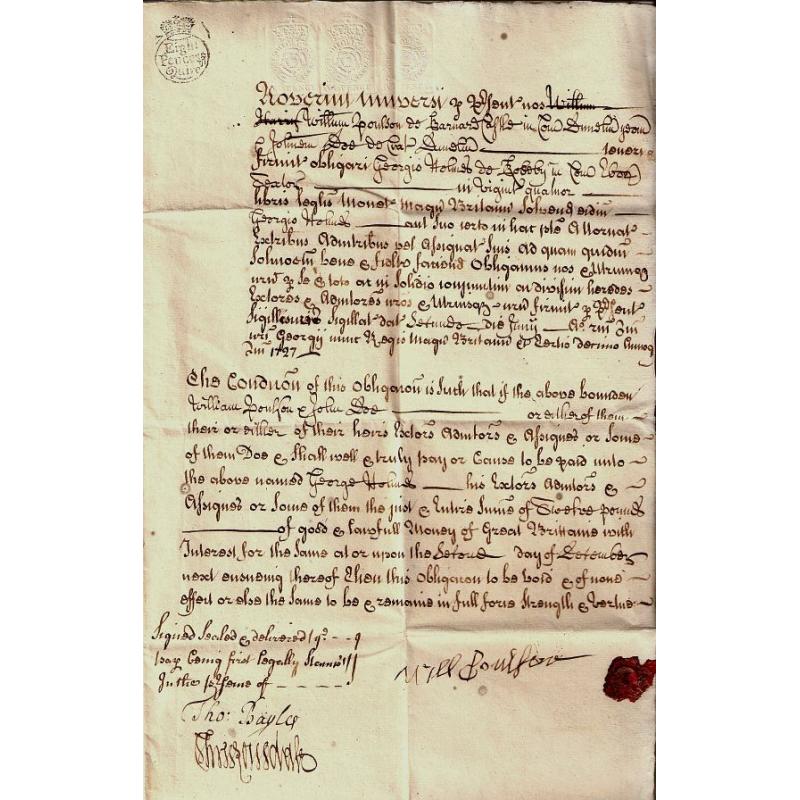 Eight
Pence p
Quire
Noverint Universi p Psent nos William
Harris William Poulson de Barnard Castle in Com Dunelm yeom
& Johnem Doe de Ead Dunelm teneri &
firmit obligari Georgio Holmes de in Com Ebor
in Vigint quatuor
libris leglis Monet Magn Britann Solvend eidm
Georgio Holmes aut suo certo in hac pte Attornat
Extribus Admtribus vel Assignat Suis Ad quam quidm
Soluconem bene & fidlr faciend Obligamus nos & Utrumq
nrm p se & toto ac in Solido conjunctim ac divisim heredes
Extores & Admtores nros & Utriusq nrm firmit p Psent
Sigill Sigillat dat Secundo die Junij Ao rni Dni
nri Georgij nunc Regis Magn Britann & Tertio decimo Annoq
Dni 1727
The Condicon of this Obligacon is Such that if the above bounden
William Poulson & John Doe or either of them
their or either of their heirs Extors Admtors & Assignes or Some
of them Doe & Shall well & truly pay or Cause to be paid unto
the above named George Holmes his Extors Admtors &
Assignes or Some of them the just & Entire Summ of Twelve pounds
of good & lawfull Money of Great Brittaine with
Interest for the Same at or upon the Second day of December
next ensueing thereof Then this Obligacon to be void & of none
effect or else the Same to be & remaine in full force Strength & Vertue
Signed Sealed & delivered (ye
pap being first legally Stampt)
In the psence of
Will Poulson
Tho: Bayles